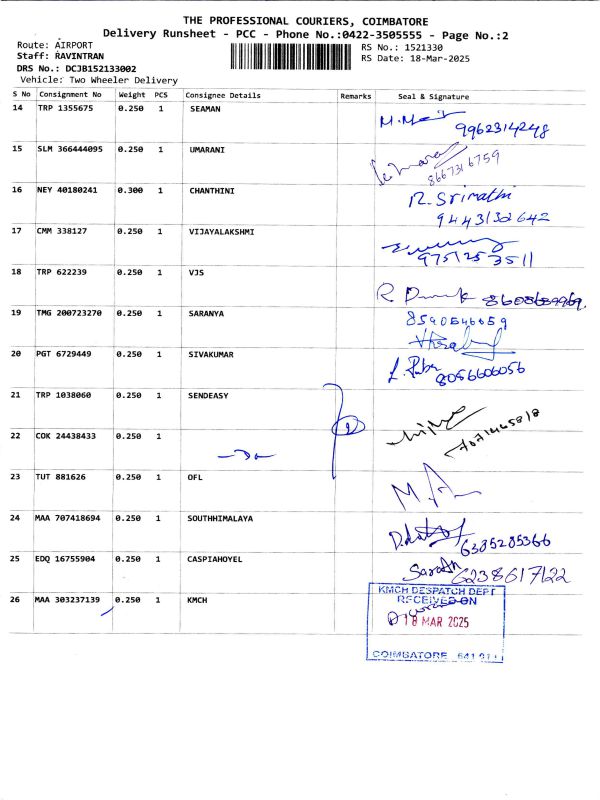 THE PROFESSIONAL COURIERS, COIMBATORE
Delivery Runsheet - PCC - Phone No.:0422-3505555 - Page No.:2
Route: AIRPORT
RS No.: 1521330
Staff: RAVINTRAN
RS Date: 18-Mar-2025
DRS No.: DCJB152133002
Vehicle: Two Wheeler Delivery
S No Consignment No Weight PCS Consignee Details Remarks Seal & Signature
14 TRP 1355675 0.250 1 SEAMAN
9962314248
15 SLM 366444095 0.250 1 UMARANI
8667316759
16 NEY 40180241 0.300 1 CHANTHINI R. Srimathi
9443132642
17 CMM 338127 0.250 1 VIJAYALAKSHMI
9751253511
18 TRP 622239 0.250 1 VJS
19 TMG 200723270 0.250 1 SARANYA
20 PGT 6729449 0.250 1 SIVAKUMAR
8056606056
21 TRP 1038060 0.250 1 SENDEASY
22 COK 24438433 0.250 1
23 TUT 881626 0.250 1 OFL
24 MAA 707418694 0.250 1 SOUTHHIMALAYA
6385285366
25 EDQ 16755904 0.250 1 CASPIAHOYEL
Sarath 6238617122
26 MAA 303237139 0.250 1 KMCH
KMCH DESPATCH DEPT
RECEIVED ON
18 MAR 2025
COIMBATORE